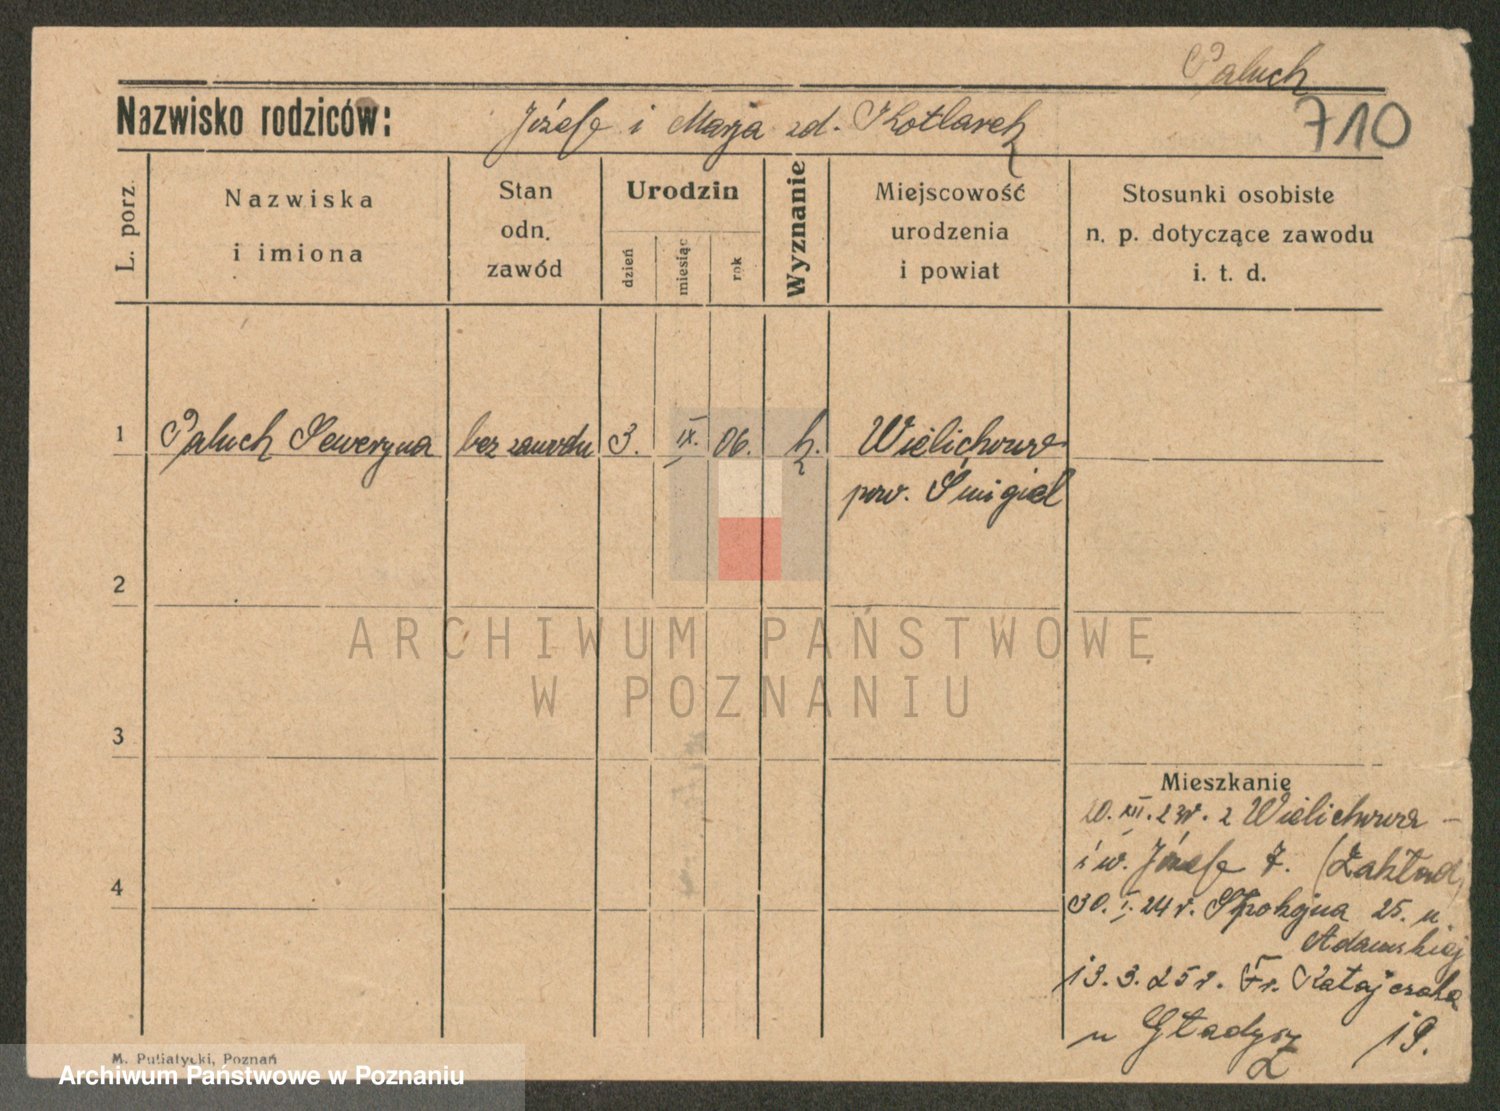 Paluch
Nazwisko rodziców: Józefe i Marja zd. Kotlarek
710
L. porz.
Nazwiska
i imiona
Stan
odn.
zawód
Urodzin
dzień
miesiąc
rok
Wyznanie
Miejscowość
urodzenia
i powiat
Stosunki osobiste
n. p. dotyczące zawodu
i. t. d.
1 Paluch Seweryna bez zawodu 3. IX. 06. k. Wielichowo
pow. Śmigiel
2
3
4
ARCHIWUM PAŃSTWOWE
W POZNANIU
Mieszkanie
20. XII. 23r. z Wielichowa -
św. Józefe 7. (Zakład)
30. I. 24 r. Spokojna 25. u
Adamskiej
19. 3. 25 r. Fr. Ratajczaka
u Gładysz 19.
M. Putiatycki, Poznań
Archiwum Państwowe w Poznaniu